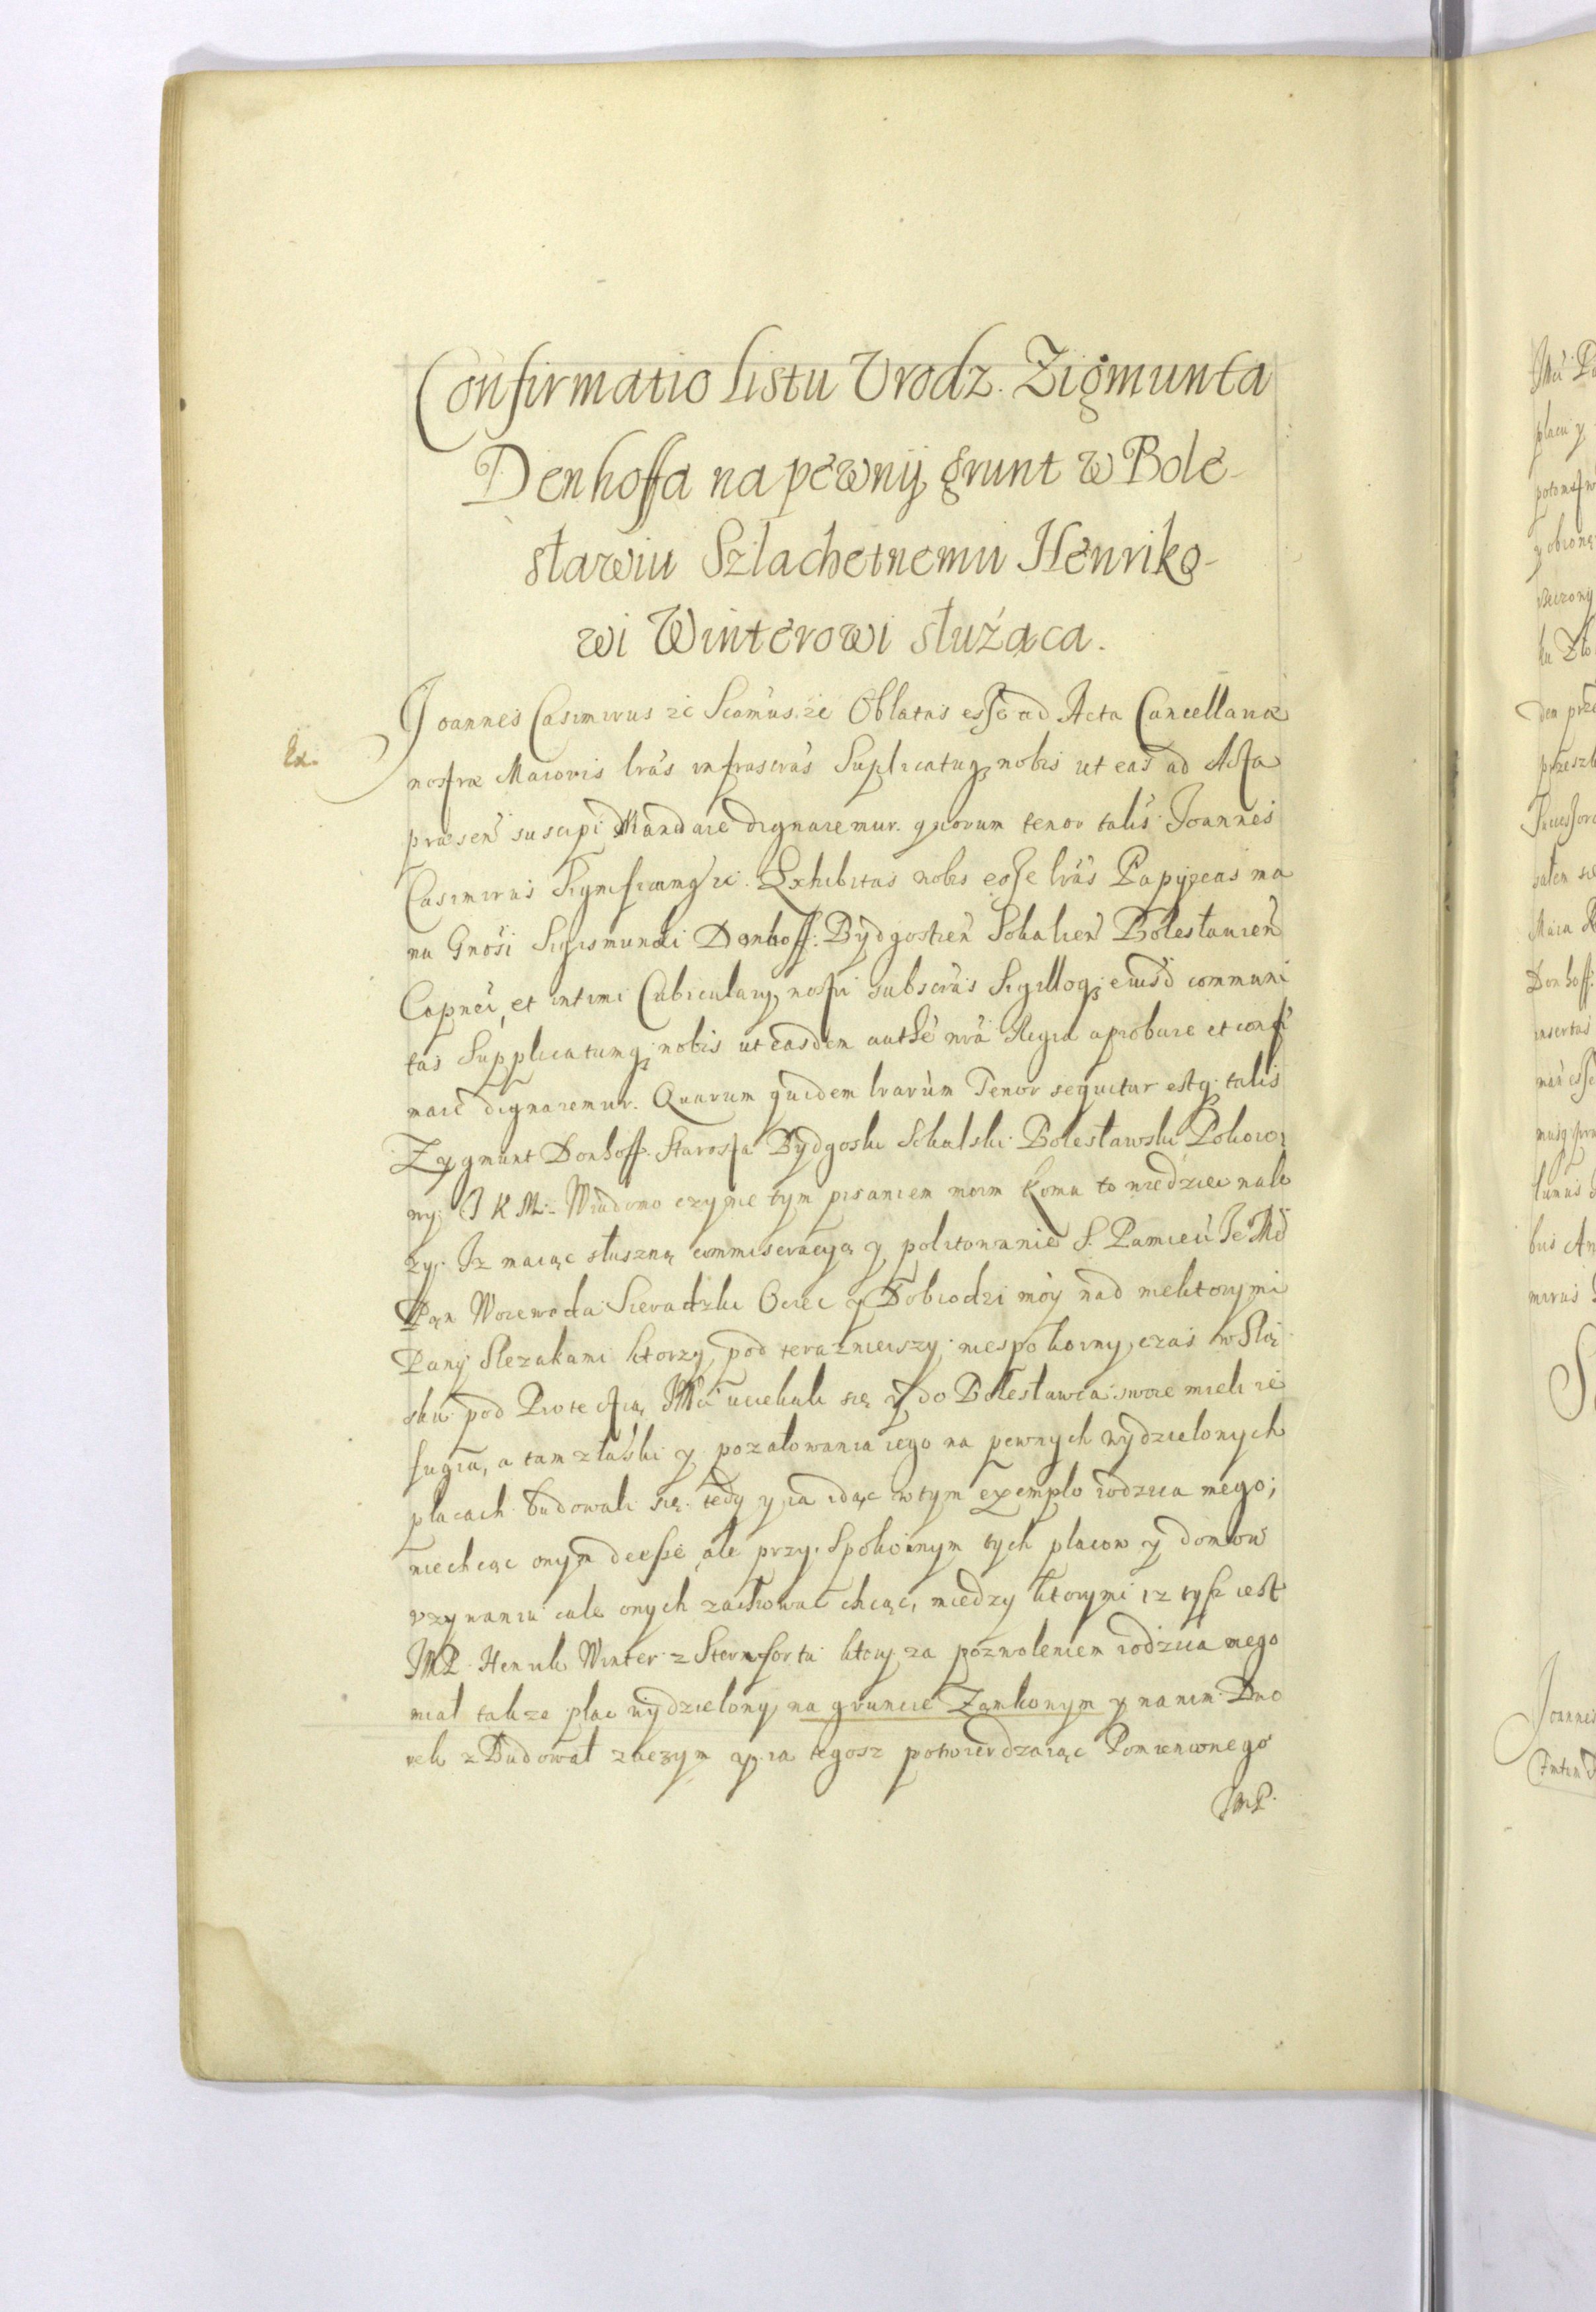 Confirmatio Listu Urodz. Zigmunta
Denhoffa na pewnij grunt w Bole-
sławiu Szlachetnemu Henriko-
wi Winterowi służąca.
Ex.
Joannes Casimirus zc Scamus. zc Oblatas esse ad Acta Cancellariæ
nostræ Maioris lras infrascras Suplicatuq nobis ut eas ad Acta
præsen suscipi Mandare dignaremur. quorum tenor talis Joannes
Casimirus Significamq zc. Exhibitas nobis esse lras Papyreas ma
nu Gnosi Sigismundi Donhoff: Bydgostien Sokalien Bolestauien
Capnei, et intimi Cubiculary nostri subscras Sigilloq eiusd communi
tas Supplicatumq nobis ut easdem authe nra Regia aprobare et confi
mare dignaremur. Quarum quidem lrarum Tenor sequitur estq talis
Zygmunt Donhoff. Starosta Bydgoski Sokalski Bolesławski Pokoio
wy J K M: Wiadomo czynie tym pisaniem moim komu to wiedziec nale
zy. Iz maiąc słuszną commiseracyą y politowanie S. Pamieci Je Mc
Pan Woiewoda Sieradzki Ociec y Dobrodzi móy nad niektorymi
Pany Slezakami ktorzy pod teraznieiszy niespokoiny czas w Slą
sku pod Protectią JMci uciekali się y do Bolesławca swoie mieli re
fugia, a tam złaski y pozałowania iego na pewnych wydzielonych
placach budowali się. tedy y ia idąc wtym exemplo rodzica mego;
niechcąc onym deesse, ale przy Spokoinym tych placow y domow
uzywaniu cale onych zachować chcąc, miedzy ktorymi iz tysz iest
JMP. Henrik Winter z Sternfortu ktory za pozwoleniem rodzica mego
miał takze plac wydzielony na gruncie Zamkowym y na nim Dwo
rek z Budował zaczym y ia tegosz potwierdzaiąc Pomienionego
JMP.